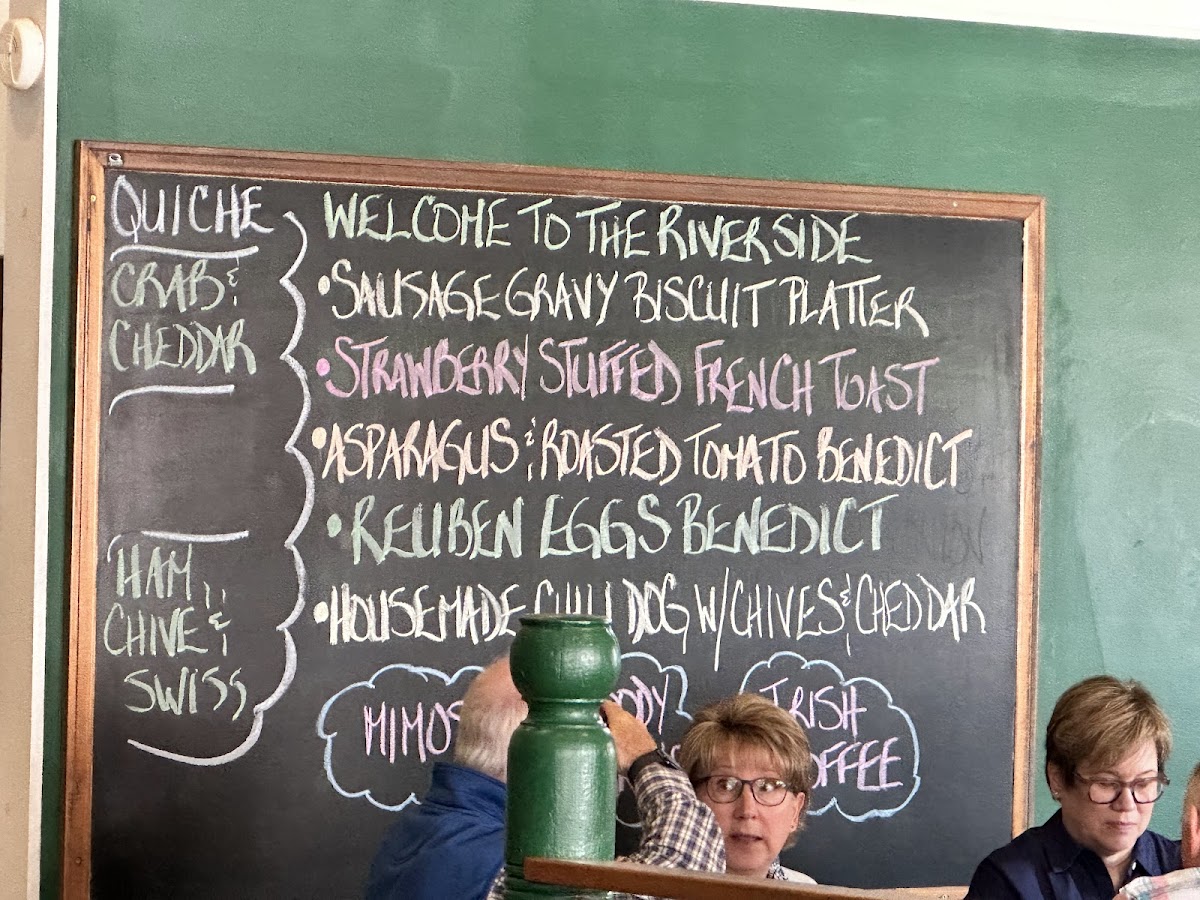 QUICHE
CRAB &
CHEDDAR
HAM,
CHIVE &
SWISS
WELCOME TO THE RIVERSIDE
• SAUSAGE GRAVY BISCUIT PLATTER
• STRAWBERRY STUFFED FRENCH TOAST
• ASPARAGUS & ROASTED TOMATO BENEDICT
• REUBEN EGGS BENEDICT
• HOUSEMADE CHILI DOG W/CHIVES & CHEDDAR
IRISH